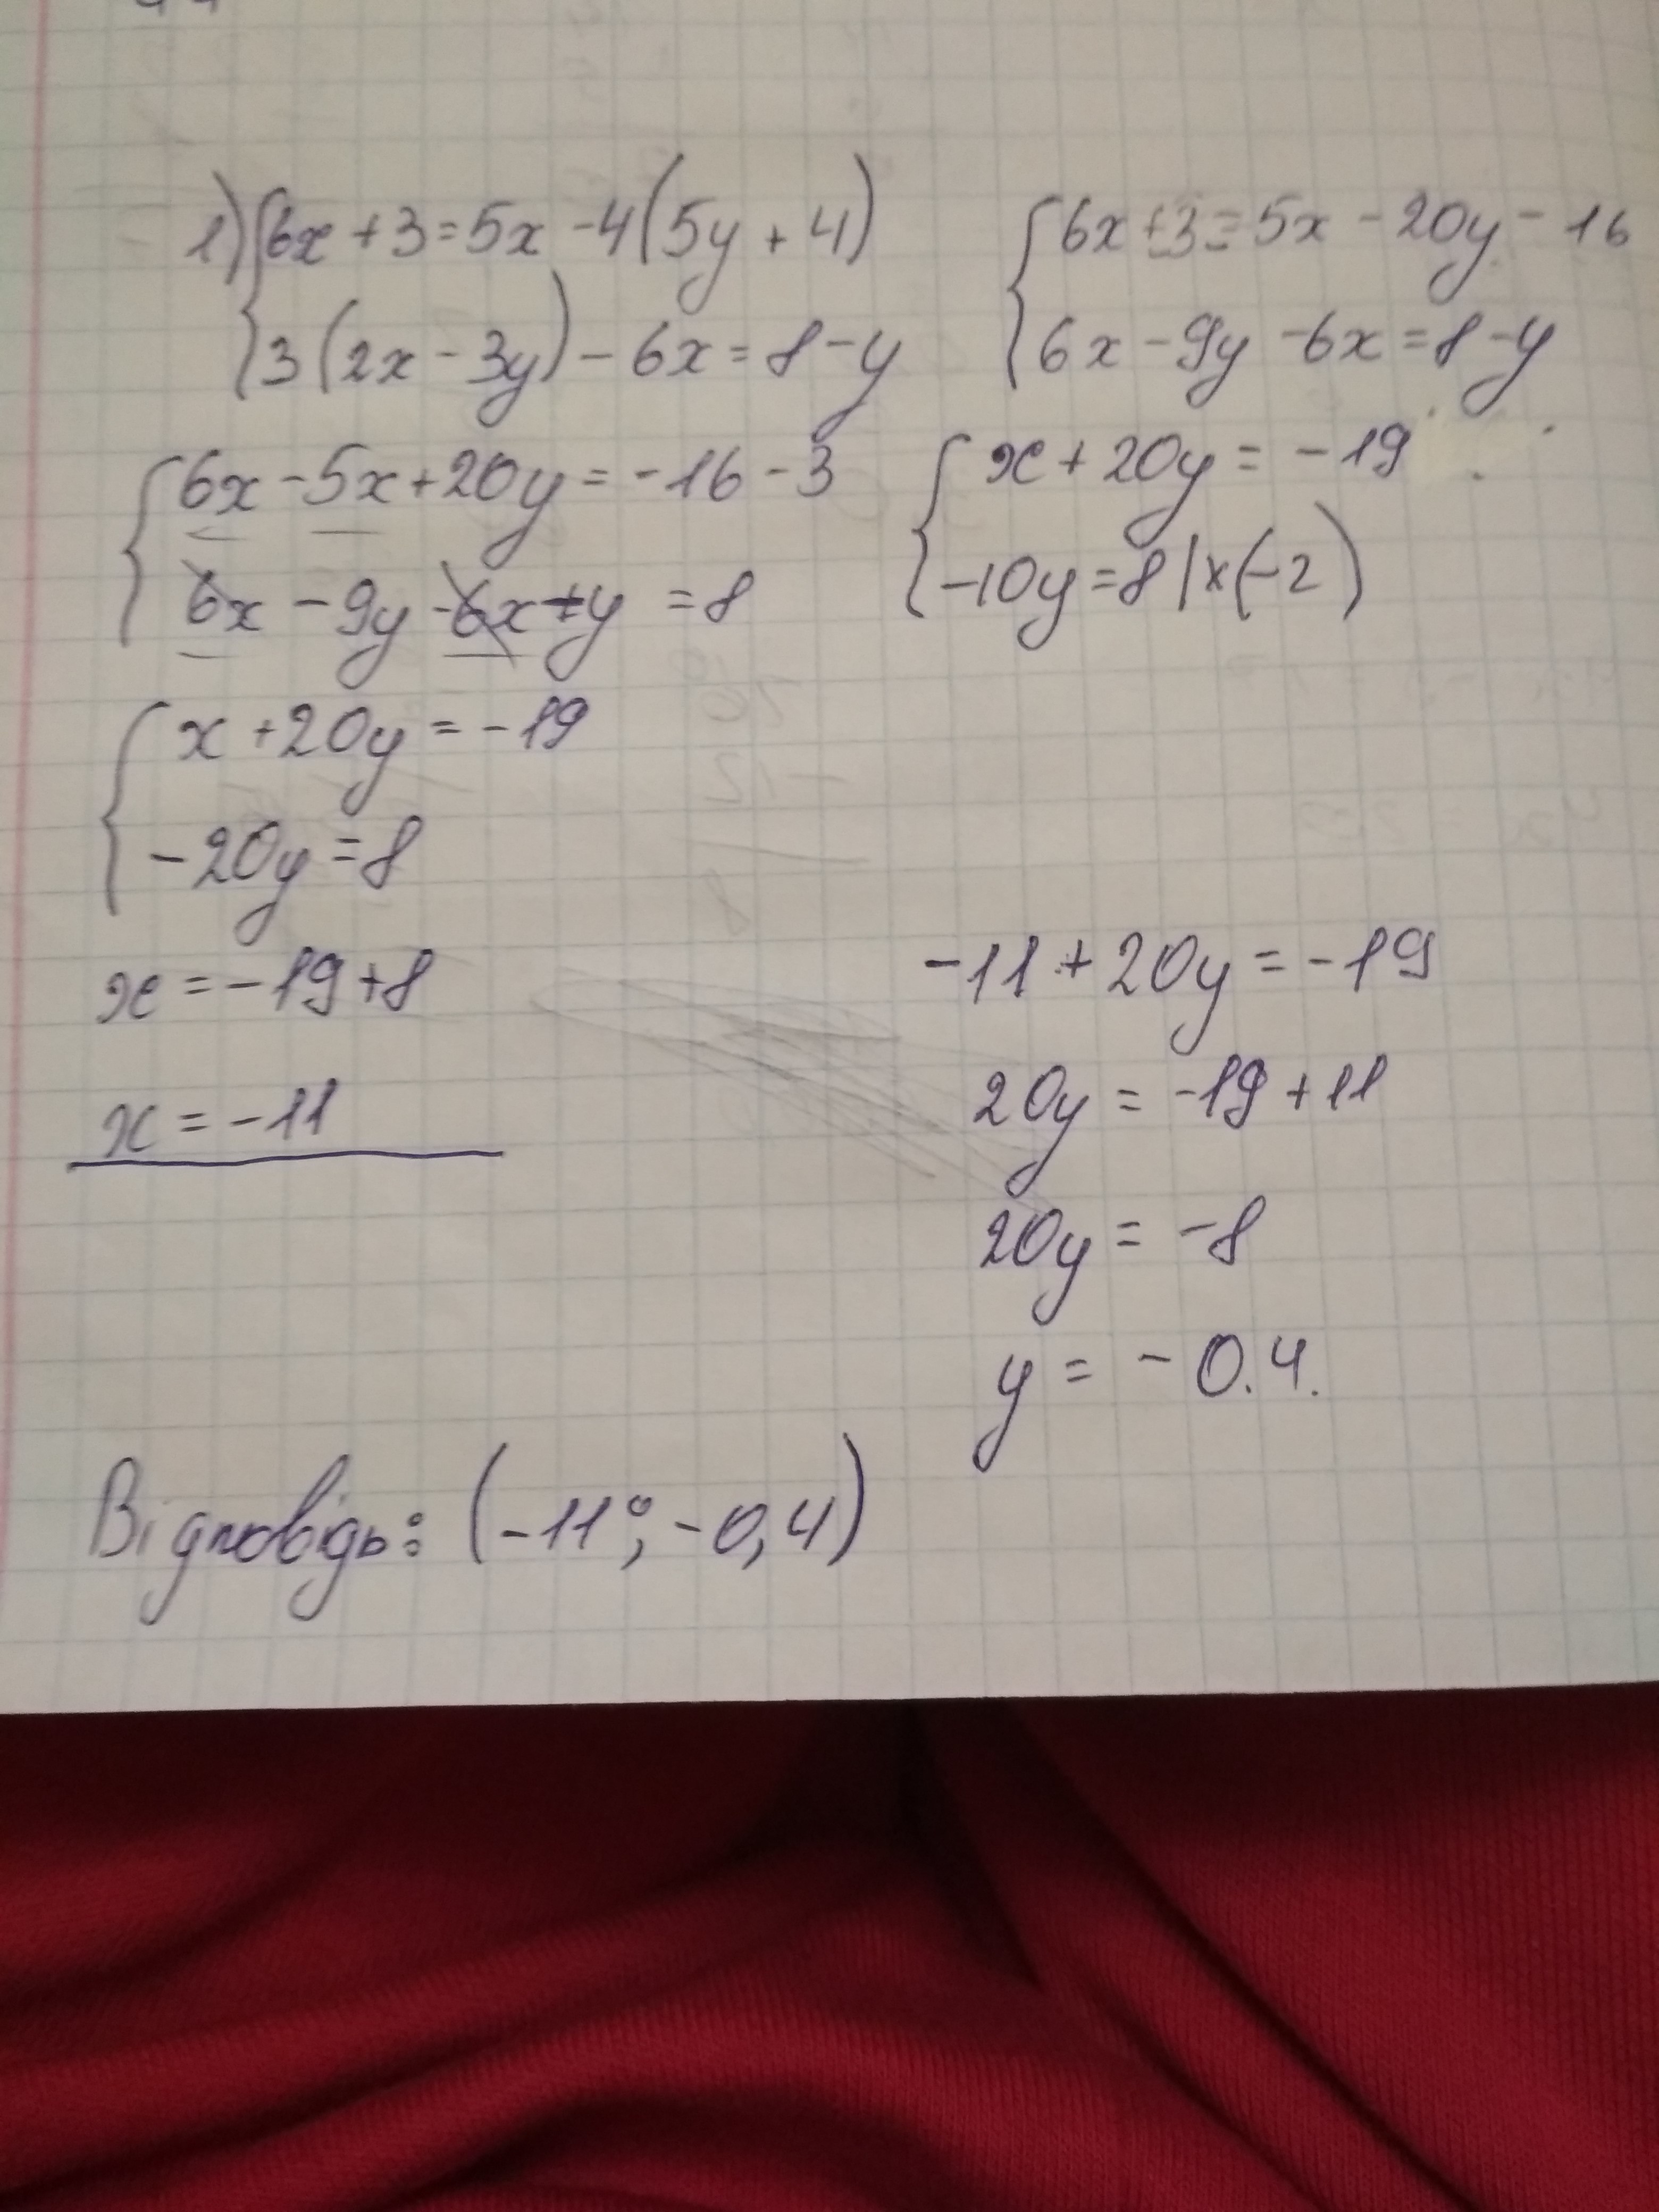 1) { 6x + 3 = 5x - 4(5y + 4)
{ 3(2x - 3y) - 6x = 8 - y
{ 6x + 3 = 5x - 20y - 16
{ 6x - 9y - 6x = 8 - y
{ 6x - 5x + 20y = -16 - 3
{ 6x - 9y - 6x + y = 8
{ x + 20y = -19
{ -10y = 8 | x(-2)
{ x + 20y = -19
{ -20y = 8
x = -19 + 8
x = -11
-11 + 20y = -19
20y = -19 + 11
20y = -8
y = -0.4.
Відповідь: (-11; -0,4)